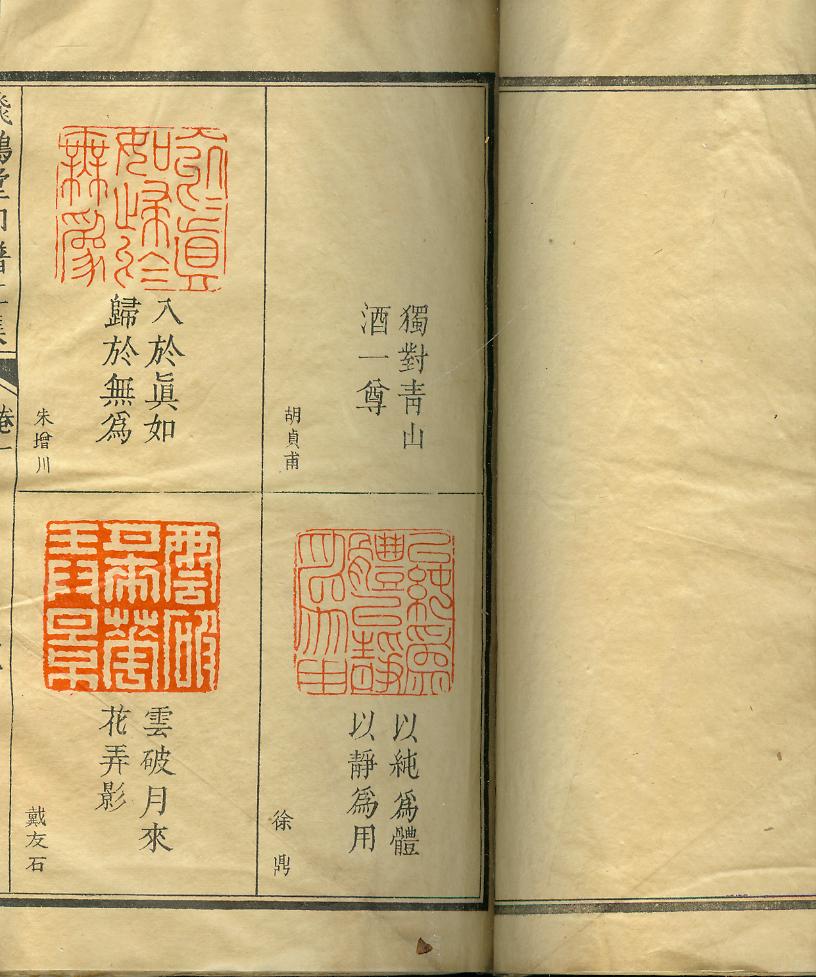 獨對青山
酒一尊
胡貞甫
以純爲體
以靜爲用
徐鼎
入於眞如
歸於無爲
朱增川
雲破月來
花弄影
戴友石
飛鴻堂印譜
卷一